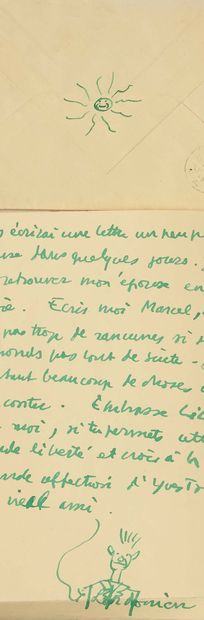 écrirai une lettre un peu p
dans quelques jours.
retrouver mon épouse en
Ecris moi Marcel,
pas trop de rancunes si
ponds pas tout de suite -
tant beaucoup de choses
conter. Embrasse
moi, si tu permets
de liberté et crois à la
nde affection d'Yves T
vieil ami.